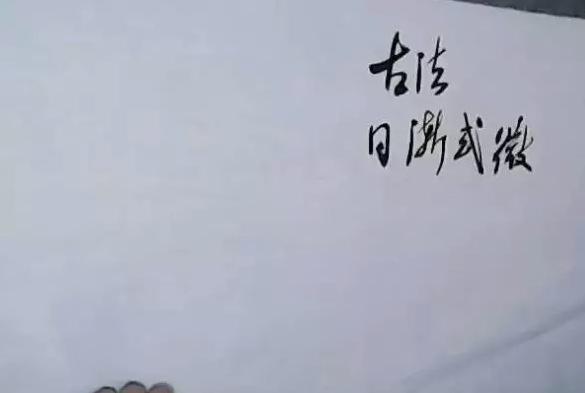 古法
日渐式微